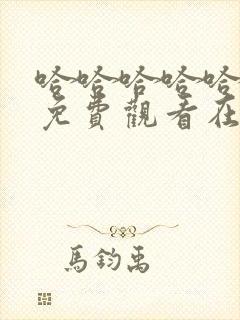 哈哈哈哈哈
免費觀看在
馬鈞禹